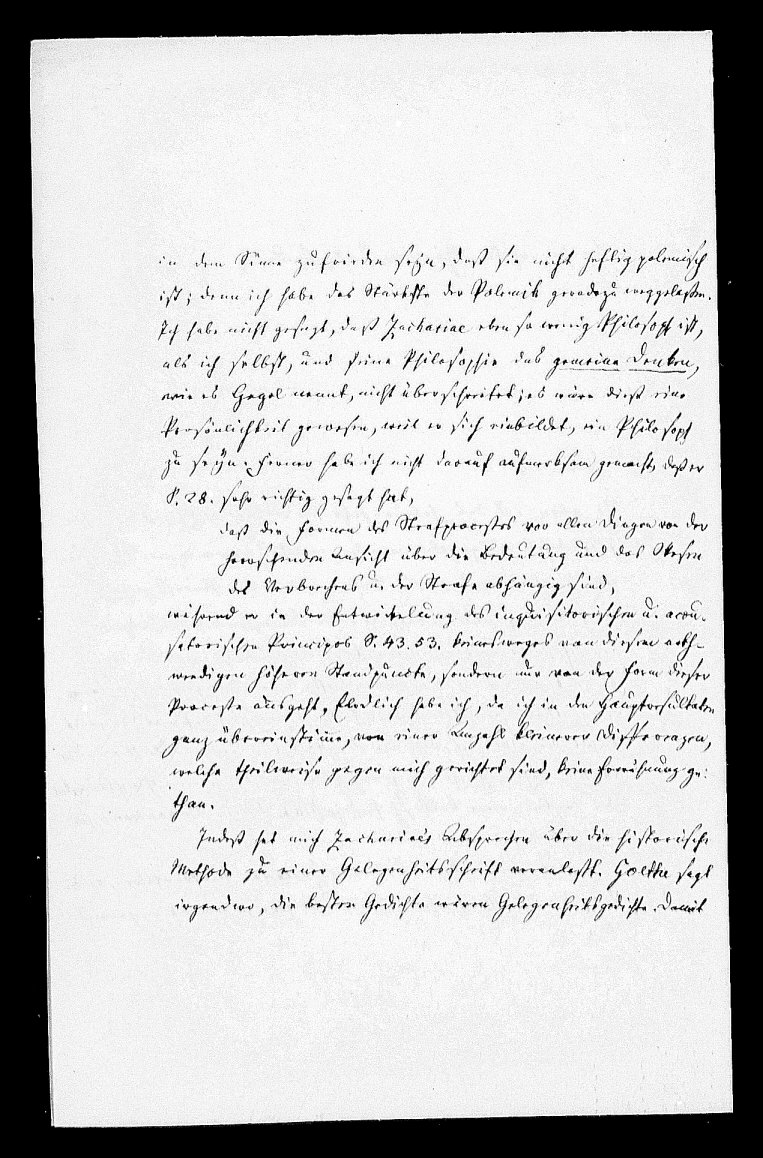 in dem Sinne zufrieden seyn, daß sie nicht heftig polemisch
ist; denn ich habe das Stärkste der Polemik geradezu weggelaßen.
Ich habe nicht gesagt, daß Zachariae eben so wenig Philosoph ist,
als ich selbst, und seine Philosophie das gemeine Denken,
wie es Hegel nennt, nicht überschreitet; es wäre dieß eine
Persönlichkeit gewesen, weil er sich einbildet, ein Philosoph
zu seyn. Ferner habe ich nicht darauf aufmerksam gemacht, daß er
S. 28. sehr richtig gesagt hat,
daß die Formen des Strafprocesses vor allen Dingen von der
herrschenden Ansicht über die Bedeutung und das Wesen
des Verbrechens u. der Strafe abhängig sind,
während er in der Entwickelung des inquisitorischen u. accu-
satorischen Principes S. 43. 53. keinesweges von diesem noth-
wendigen höheren Standpuncte, sondern nur von der Form dieser
Processe ausgeht. Endlich habe ich, da ich in den Hauptresultaten
ganz übereinstimme, von einer Anzahl kleinerer Differenzen,
welche theilweise gegen mich gerichtet sind, keine Erwähnung ge-
than.
Indeß hat mich Zachariae's Absprechen über die historische
Methode zu einer Gelegenheitsschrift veranlaßt. Goethe sagt
irgendwo, die besten Gedichte wären Gelegenheitsgedichte. Damit